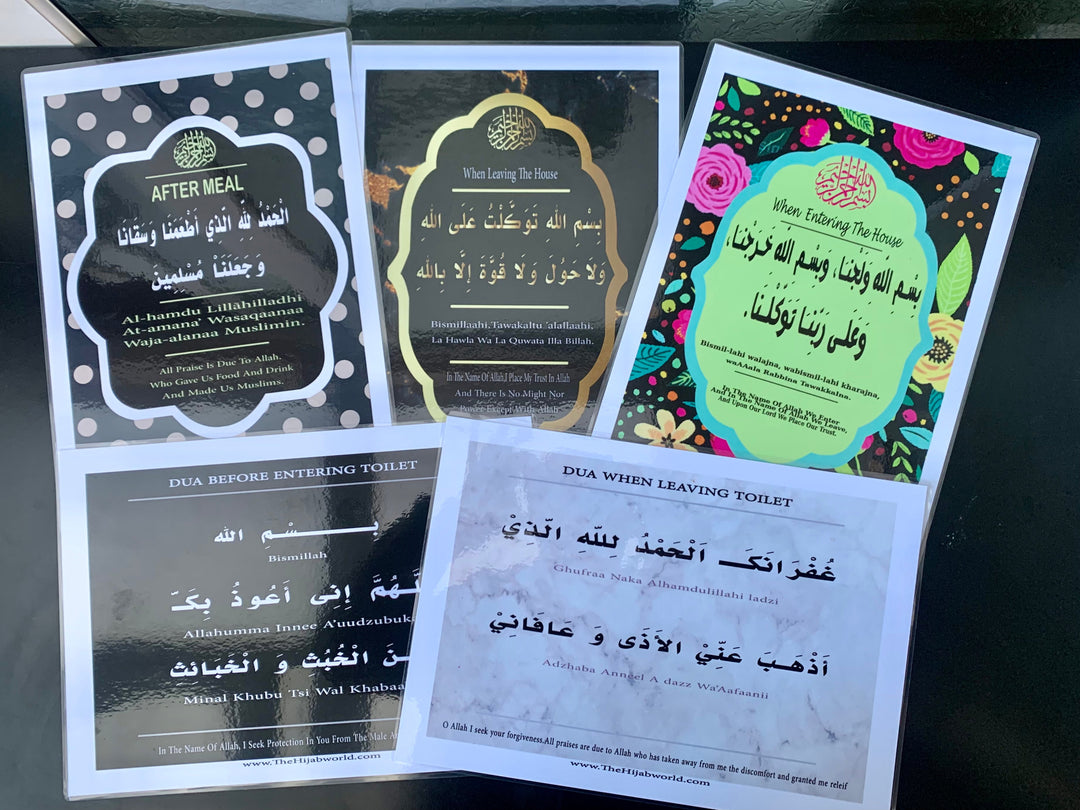 بسم الله الرحمن الرحيم
AFTER MEAL
الْحَمْدُ لِلَّهِ الَّذِي أَطْعَمَنَا وَسَقَانَا
وَجَعَلَنَا مُسْلِمِينَ
Al-hamdu Lillahilladhi
At-amana' Wasaqaanaa
Waja-alanaa Muslimin.
All Praise Is Due To Allah.
Who Gave Us Food And Drink
And Made Us Muslims.
بسم الله الرحمن الرحيم
When Leaving The House
بِسْمِ اللهِ تَوَكَّلْتُ عَلَى اللهِ
وَلَا حَوْلَ وَلَا قُوَّةَ إِلَّا بِاللهِ
Bismillaahi,Tawakaltu 'alallaahi,
La Hawla Wa La Quwata Illa Billah.
In The Name Of Allah,I Place My Trust In Allah
And There Is No Might Nor
Power Except With Allah
بسم الله الرحمن الرحيم
When Entering The House
بِسْمِ اللَّهِ وَلَجْنَا، وَبِسْمِ اللَّهِ خَرَجْنَا،
وَعَلَى رَبِّنَا تَوَكَّلْنَا،
Bismil-lahi walajna, wabismil-lahi kharajna,
waAAala Rabbina Tawakkalna.
In The Name Of Allah We Enter
And In The Name Of Allah We Leave,
And Upon Our Lord We Place Our Trust.
DUA BEFORE ENTERING TOILET
بِــسْمِ الله
Bismillah
لَّهُمَّ إِنِى اَعُوذُ بِكَ
Allahumma Innee A'uudzubuk
نَ الْخُبُثِ وَ الْخَبَائث
Minal Khubu Tsi Wal Khabaa
In The Name Of Allah, I Seek Protection In You From The Male A
www.TheHijabworld.com
DUA WHEN LEAVING TOILET
غُفْرَانَكَ اَلْحَمْدُ لِلّٰهِ الَّذِيْ
Ghufraa Naka Alhamdulillahi ladzi
اَذْهَبَ عَنِّيْ الاَذَى وَ عَافَانِيْ
Adzhaba Anneel A dazz Wa'Aafaanii
O Allah I seek your forgiveness.All praises are due to Allah who has taken away from me the discomfort and granted me releif
www.TheHijabworld.com